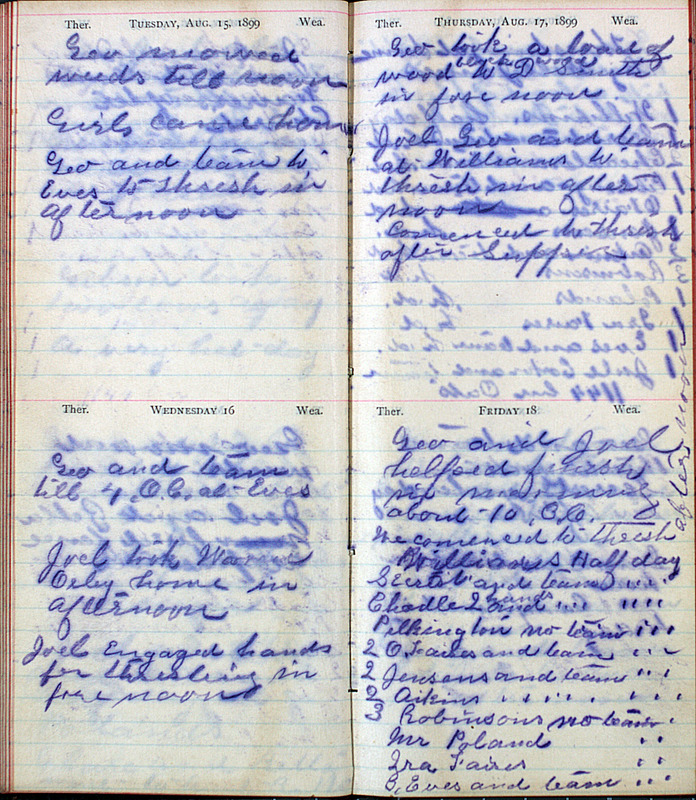 Ther. TUESDAY, AUG. 15, 1899 Wea.
Geo mowed
weeds till noon
Girls came home
Geo and team to
Eves to thresh in
afternoon
Ther. WEDNESDAY 16 Wea.
Geo and team
till 4 O.C. at Eves
Joel took
home in
afternoon
Joel Engaged hands
for threshing in
fore noon
Ther. THURSDAY, AUG. 17, 1899 Wea.
Geo took a load of
black wood
wood to D Smith
in fore noon
Joel Geo and team
at Williams to
thresh in after
noon
Comenced to thresh
after Supper
Ther. FRIDAY 18 Wea.
Geo and Joel
helped finish
in morning
about 10 O.C.
We comenced to thresh
Williams Half day
and team " "
2 hands
and " " "
Pilkington no team " "
2 O. Faires and team " "
2 Jensens and team " "
2 Aikins " " " "
3 Robinsons no team "
Mr Poland " "
Ira Faires " "
Eves and team " "
afternoon